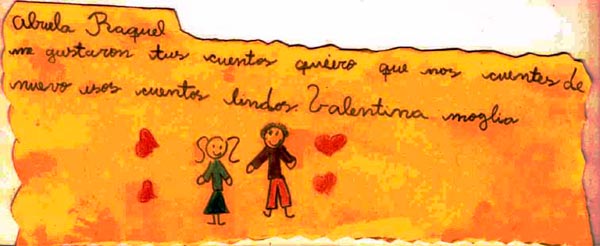 Abuela Raquel
me gustaron tus cuentos quiero que nos cuentes de
nuevo esos cuentos lindos. Valentina moglia